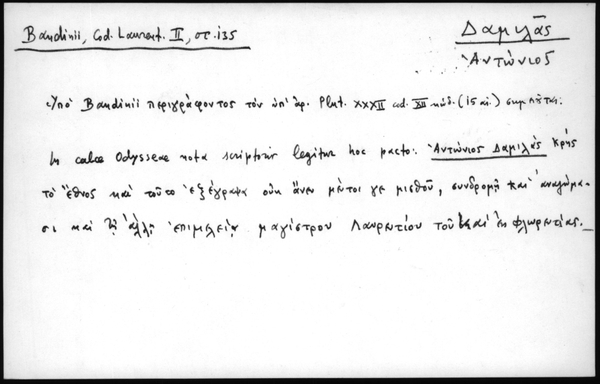 Bandinii, Cod. Laurent. II, στ. 135
Δαμιλᾶς
Ἀντώνιος
Ὑπὸ Bandinii περιγράφοντος τὸν ὑπ' ἀρ. Plut. XXXII cod. XII κώδ. (15 αἰ.) σημειοῦται:
In calce Odysseae nota scriptoris legitur hoc pacto: Ἀντώνιος Δαμιλᾶς Κρὴς
τὸ ἔθνος καὶ τοῦτο ἐξέγραψα οὐκ ἄνευ μέντοι γε μισθοῦ, συνδρομῇ καὶ ἀναλώμα-
σι καὶ τῇ ἄλλῃ ἐπιμελείᾳ μαγίστρου Λαυρεντίου τοῦ καὶ ἐκ Φλωρεντίας.